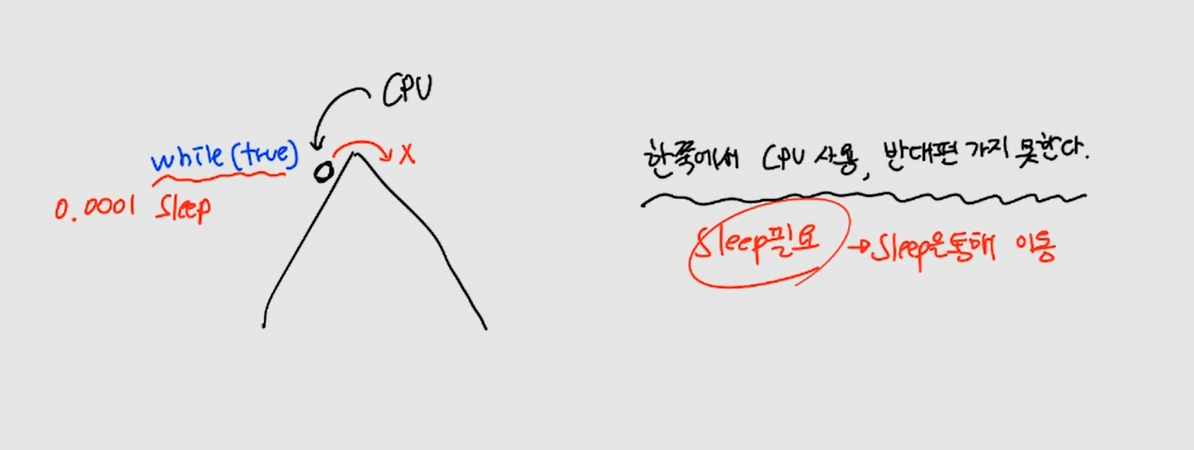 CPU
while(true)
X
0.0001 Sleep
한쪽에서 CPU 사용, 반대편 가지 못한다.
Sleep필요 → Sleep을통해 이동